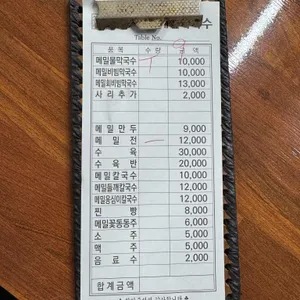 수
Table No.
품 목 수 량 금 액
메밀물막국수 10,000
메밀비빔막국수 10,000
메밀회비빔막국수 13,000
사 리 추 가 2,000
메 밀 만 두 9,000
메 밀 전 12,000
수 육 30,000
수 육 반 20,000
메밀칼국수 10,000
메밀들깨칼국수 12,000
메밀옹심이칼국수 12,000
찐 빵 8,000
메밀꽃동동주 6,000
소 주 5,000
맥 주 5,000
음 료 수 2,000
합 계 금 액